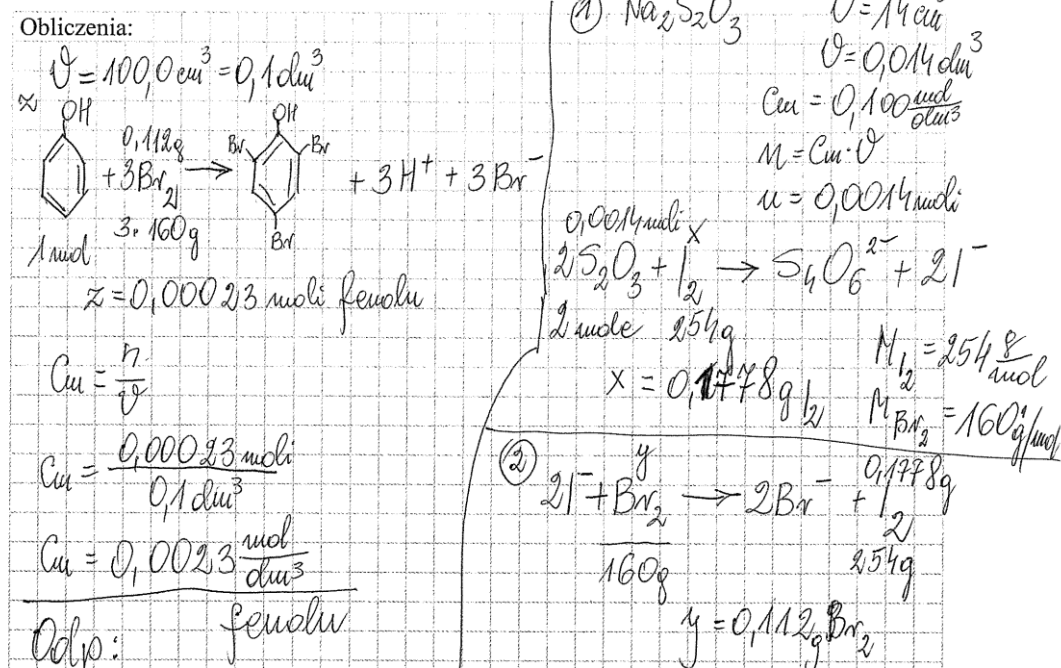 Obliczenia:
V = 100,0 cm³ = 0,1 dm³
z
OH
0,112g
+ 3Br₂ →
3·160g
1 mol
OH
Br
Br
Br
+ 3H⁺ + 3Br⁻
z = 0,00023 moli fenolu
Cm = n/V
Cm = 0,00023 moli / 0,1 dm³
Cm = 0,0023 mol/dm³
fenolu
Odp:
① Na₂S₂O₃
V = 14 cm
V = 0,014 dm³
Cm = 0,100 mol/dm³
n = Cm · V
n = 0,0014 moli
0,0014 moli x
2S₂O₃ + I₂ → S₄O₆²⁻ + 2I⁻
2 mole 254g
x = 0,1778g I₂
M I₂ = 254 g/mol
M Br₂ = 160 g/mol
② y 0,1778g
2I⁻ + Br₂ → 2Br⁻ + I₂
160g 254g
y = 0,112g Br₂